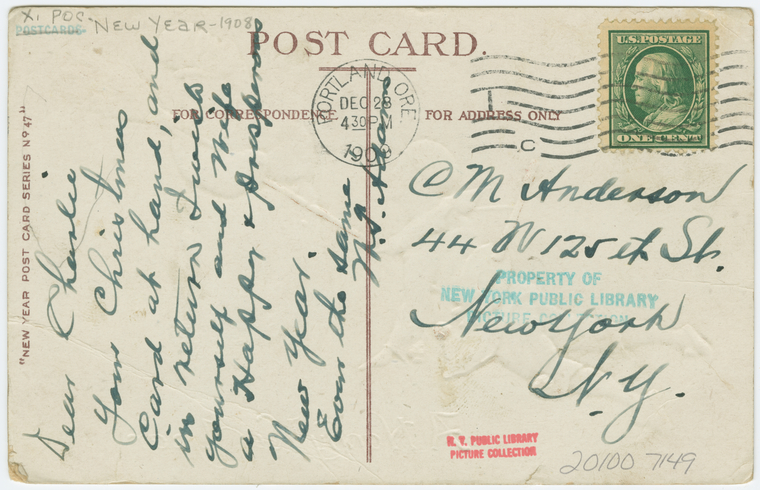 X, POC
POSTCARDS-
NEW YEAR-1908
POST CARD.
FOR CORRESPONDENCE
FOR ADDRESS ONLY
PORTLAND, ORE.
DEC 28
4 30 PM
1909
C
U.S. POSTAGE
ONE CENT
"NEW YEAR POST CARD SERIES No 47"
Dear Charlie
Your Christmas
Card at hand, and
in return I wish
yourself and Wife
a Happy & Prosperous
New Year.
Ever the same
C M Anderson
44 W. 125 th St.
New York
N.Y.
PROPERTY OF
NEW YORK PUBLIC LIBRARY
PICTURE COLLECTION
N. Y. PUBLIC LIBRARY
PICTURE COLLECTION
20100 7149